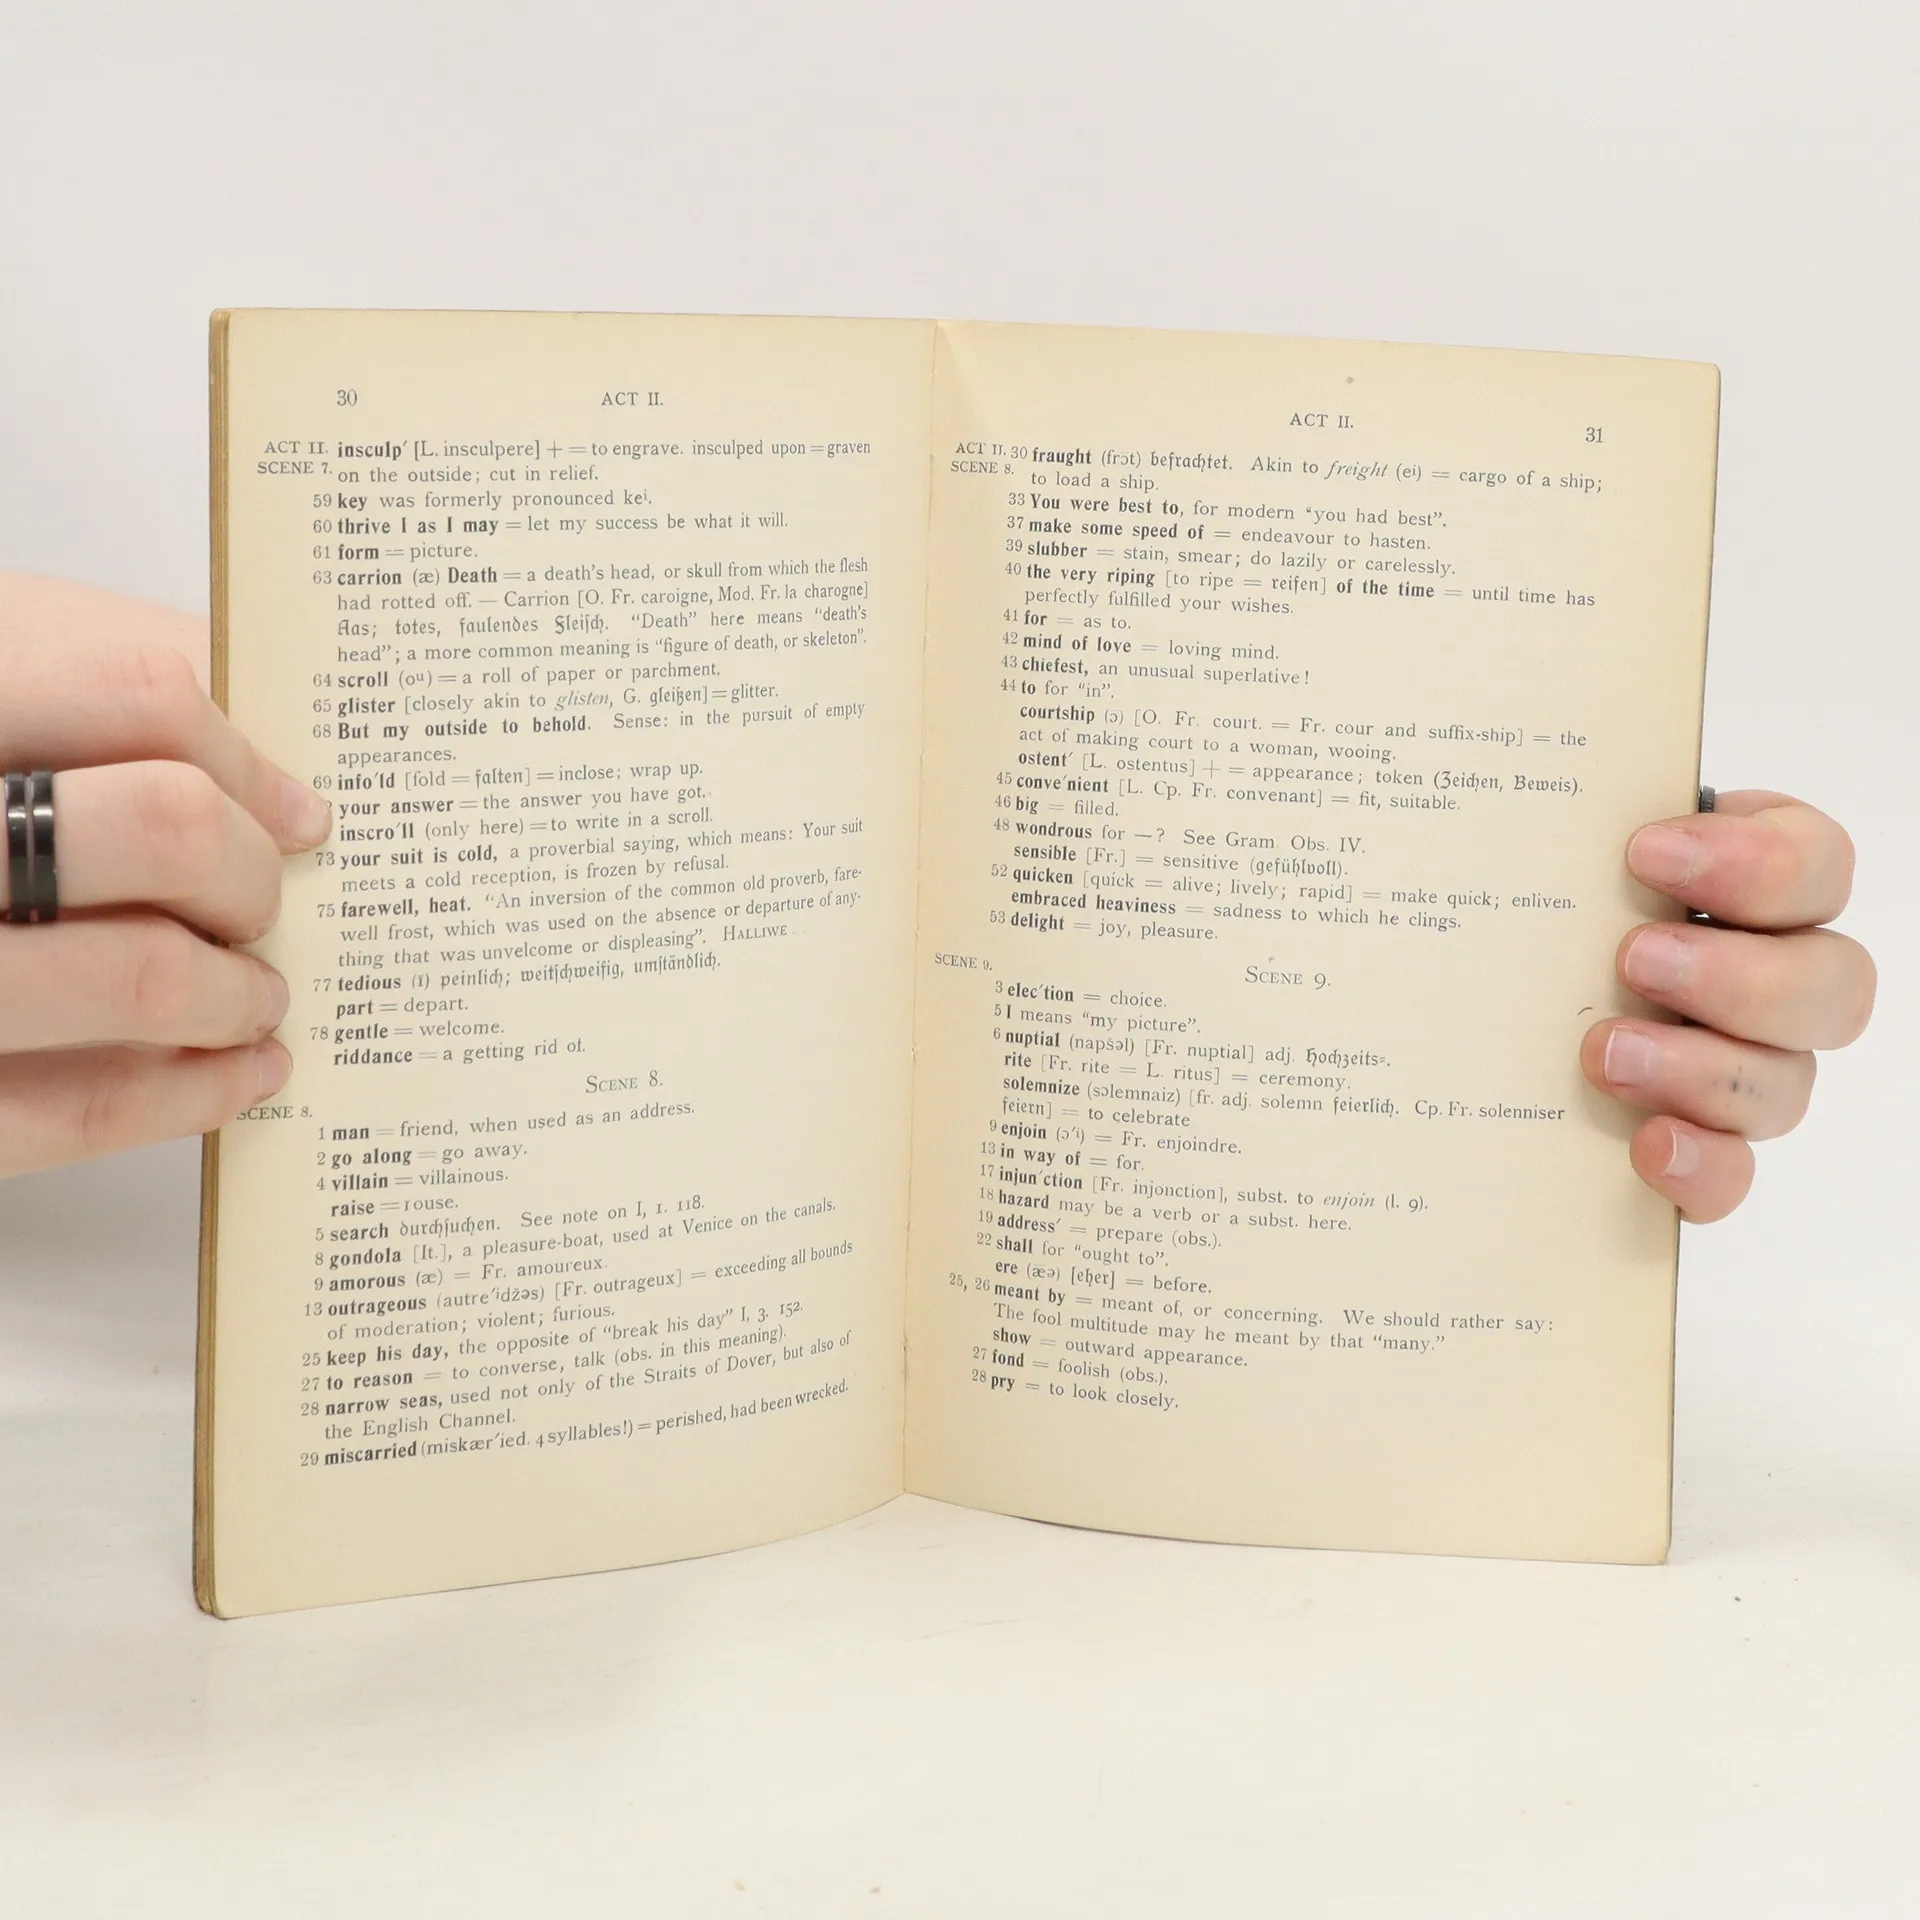 30 ACT II.
ACT II. insculp′ [L. insculpere] + = to engrave. insculped upon = graven
SCENE 7. on the outside; cut in relief.
59 key was formerly pronounced keⁱ.
60 thrive I as I may = let my success be what it will.
61 form = picture.
63 carrion (æ) Death = a death's head, or skull from which the flesh
had rotted off. — Carrion [O. Fr. caroigne, Mod. Fr. la charogne]
Aas; totes, faulendes Fleiſch. “Death” here means “death's
head”; a more common meaning is “figure of death, or skeleton”.
64 scroll (oᵘ) = a roll of paper or parchment.
65 glister [closely akin to glisten, G. gleißen] = glitter.
68 But my outside to behold. Sense: in the pursuit of empty
appearances.
69 info′ld [fold = falten] = inclose; wrap up.
your answer = the answer you have got.
inscro′ll (only here) = to write in a scroll.
73 your suit is cold, a proverbial saying, which means: Your suit
meets a cold reception, is frozen by refusal.
75 farewell, heat. “An inversion of the common old proverb, fare-
well frost, which was used on the absence or departure of any-
thing that was unvelcome or displeasing”. HALLIWE
77 tedious (ī) peinlich; weitſchweifig, umſtändlich.
part = depart.
78 gentle = welcome.
riddance = a getting rid of.
SCENE 8.
SCENE 8.
1 man = friend, when used as an address.
2 go along = go away.
4 villain = villainous.
raise = rouse.
5 search durchſuchen. See note on I, 1. 118.
8 gondola [It.], a pleasure-boat, used at Venice on the canals.
9 amorous (æ) = Fr. amoureux.
13 outrageous (autre′idžəs) [Fr. outrageux] = exceeding all bounds
of moderation; violent; furious.
25 keep his day, the opposite of “break his day” I, 3. 152.
27 to reason = to converse, talk (obs. in this meaning).
28 narrow seas, used not only of the Straits of Dover, but also of
the English Channel.
29 miscarried (miskær′ied. 4 syllables!) = perished, had been wrecked.
ACT II. 31
ACT II. 30 fraught (frɔt) befrachtet. Akin to freight (eⁱ) = cargo of a ship;
SCENE 8. to load a ship.
33 You were best to, for modern “you had best”.
37 make some speed of = endeavour to hasten.
39 slubber = stain, smear; do lazily or carelessly.
40 the very riping [to ripe = reifen] of the time = until time has
perfectly fulfilled your wishes.
41 for = as to.
42 mind of love = loving mind.
43 chiefest, an unusual superlative!
44 to for “in”.
courtship (ɔ) [O. Fr. court. = Fr. cour and suffix-ship] = the
act of making court to a woman, wooing.
ostent′ [L. ostentus] + = appearance; token (Zeichen, Beweis).
45 conve′nient [L. Cp. Fr. convenant] = fit, suitable.
46 big = filled.
48 wondrous for —? See Gram. Obs. IV.
sensible [Fr.] = sensitive (gefühlvoll).
52 quicken [quick = alive; lively; rapid] = make quick; enliven.
embraced heaviness = sadness to which he clings.
53 delight = joy, pleasure.
SCENE 9. SCENE 9.
3 elec′tion = choice.
5 I means “my picture”.
6 nuptial (napšəl) [Fr. nuptial] adj. Hochzeits=.
rite [Fr. rite = L. ritus] = ceremony.
solemnize (sɔlemnaiz) [fr. adj. solemn feierlich. Cp. Fr. solenniser
feiern] = to celebrate
9 enjoin (ɔ′i) = Fr. enjoindre.
13 in way of = for.
17 injun′ction [Fr. injonction], subst. to enjoin (l. 9).
18 hazard may be a verb or a subst. here.
19 address′ = prepare (obs.).
22 shall for “ought to”.
ere (æə) [eher] = before.
25, 26 meant by = meant of, or concerning. We should rather say:
The fool multitude may he meant by that “many.”
show = outward appearance.
27 fond = foolish (obs.).
28 pry = to look closely.